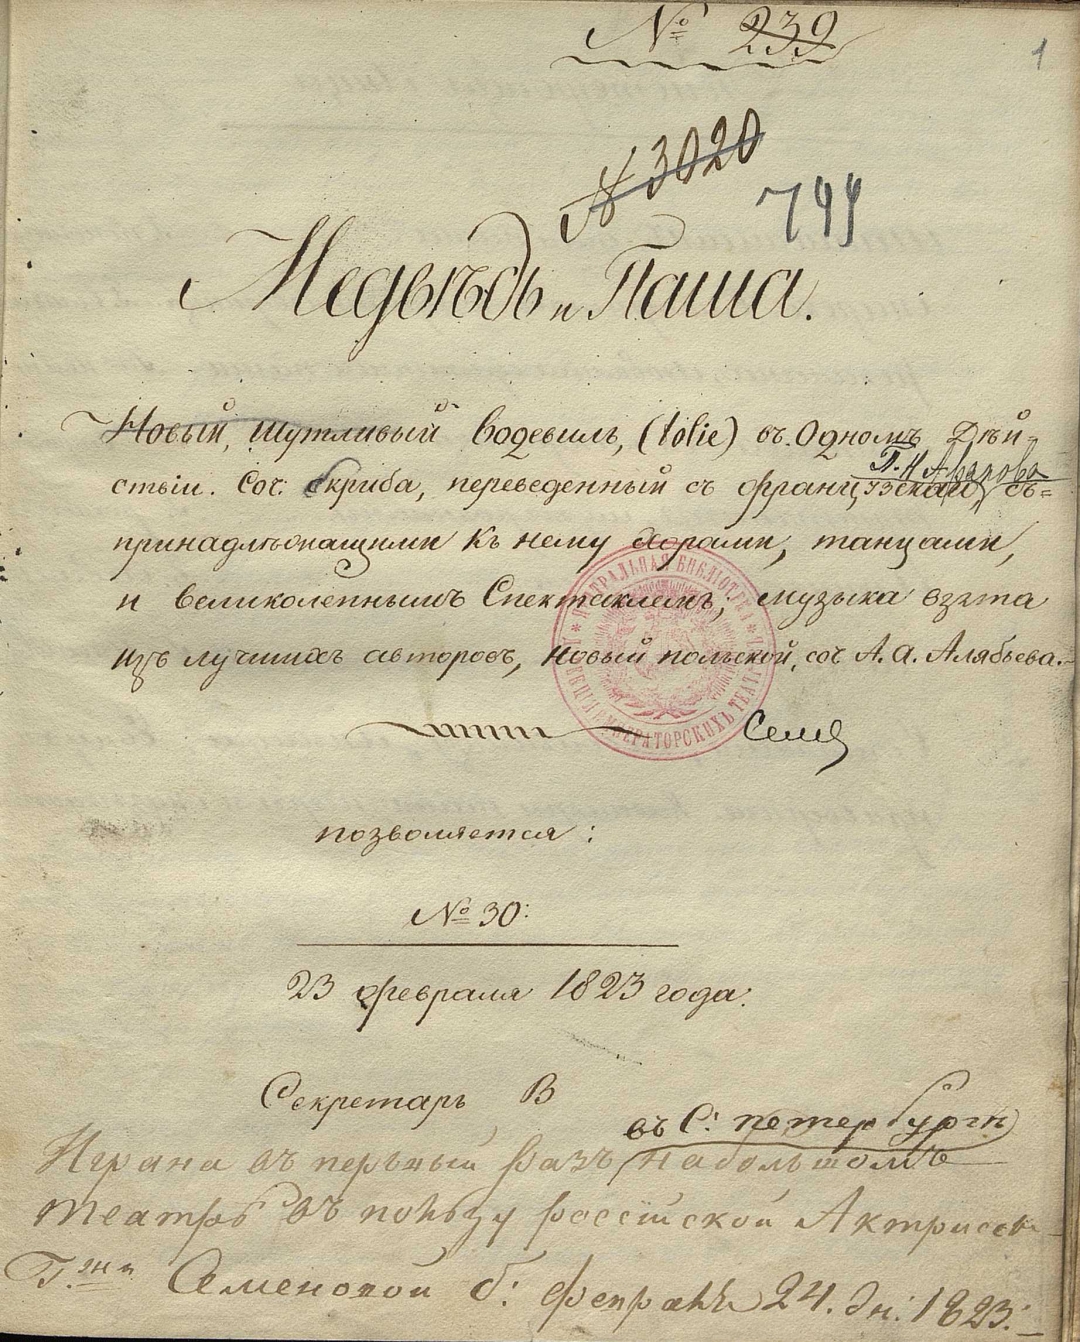 № 239
1
№ 3020
744
Медвѣдь и Паша.
Новый, шутливый Водевиль, (folie) въ Одномъ Дѣй=
ствіи. Соч: Скриба, переведенный съ французскаго съ=
П. Н. Арапова
принадлѣжащими къ нему Хорами, танцами,
и великолепнымъ Спектаклемъ, музыка взята
изъ лучшихъ авторовъ, новый польской, соч А. А. Алябьева.
ЦЕНТРАЛЬНАЯ БИБЛІОТЕКА
ИМПЕРАТОРСКИХЪ ТЕАТР
позволяется:
№ 30:
23 февраля 1823 года.
Секретарь В
въ С: петербургѣ
Играна въ первый разъ на большомъ
театрѣ въ пользу россійской Актрисы
Г.жи Семеновой б: февраля 24. дн: 1823: